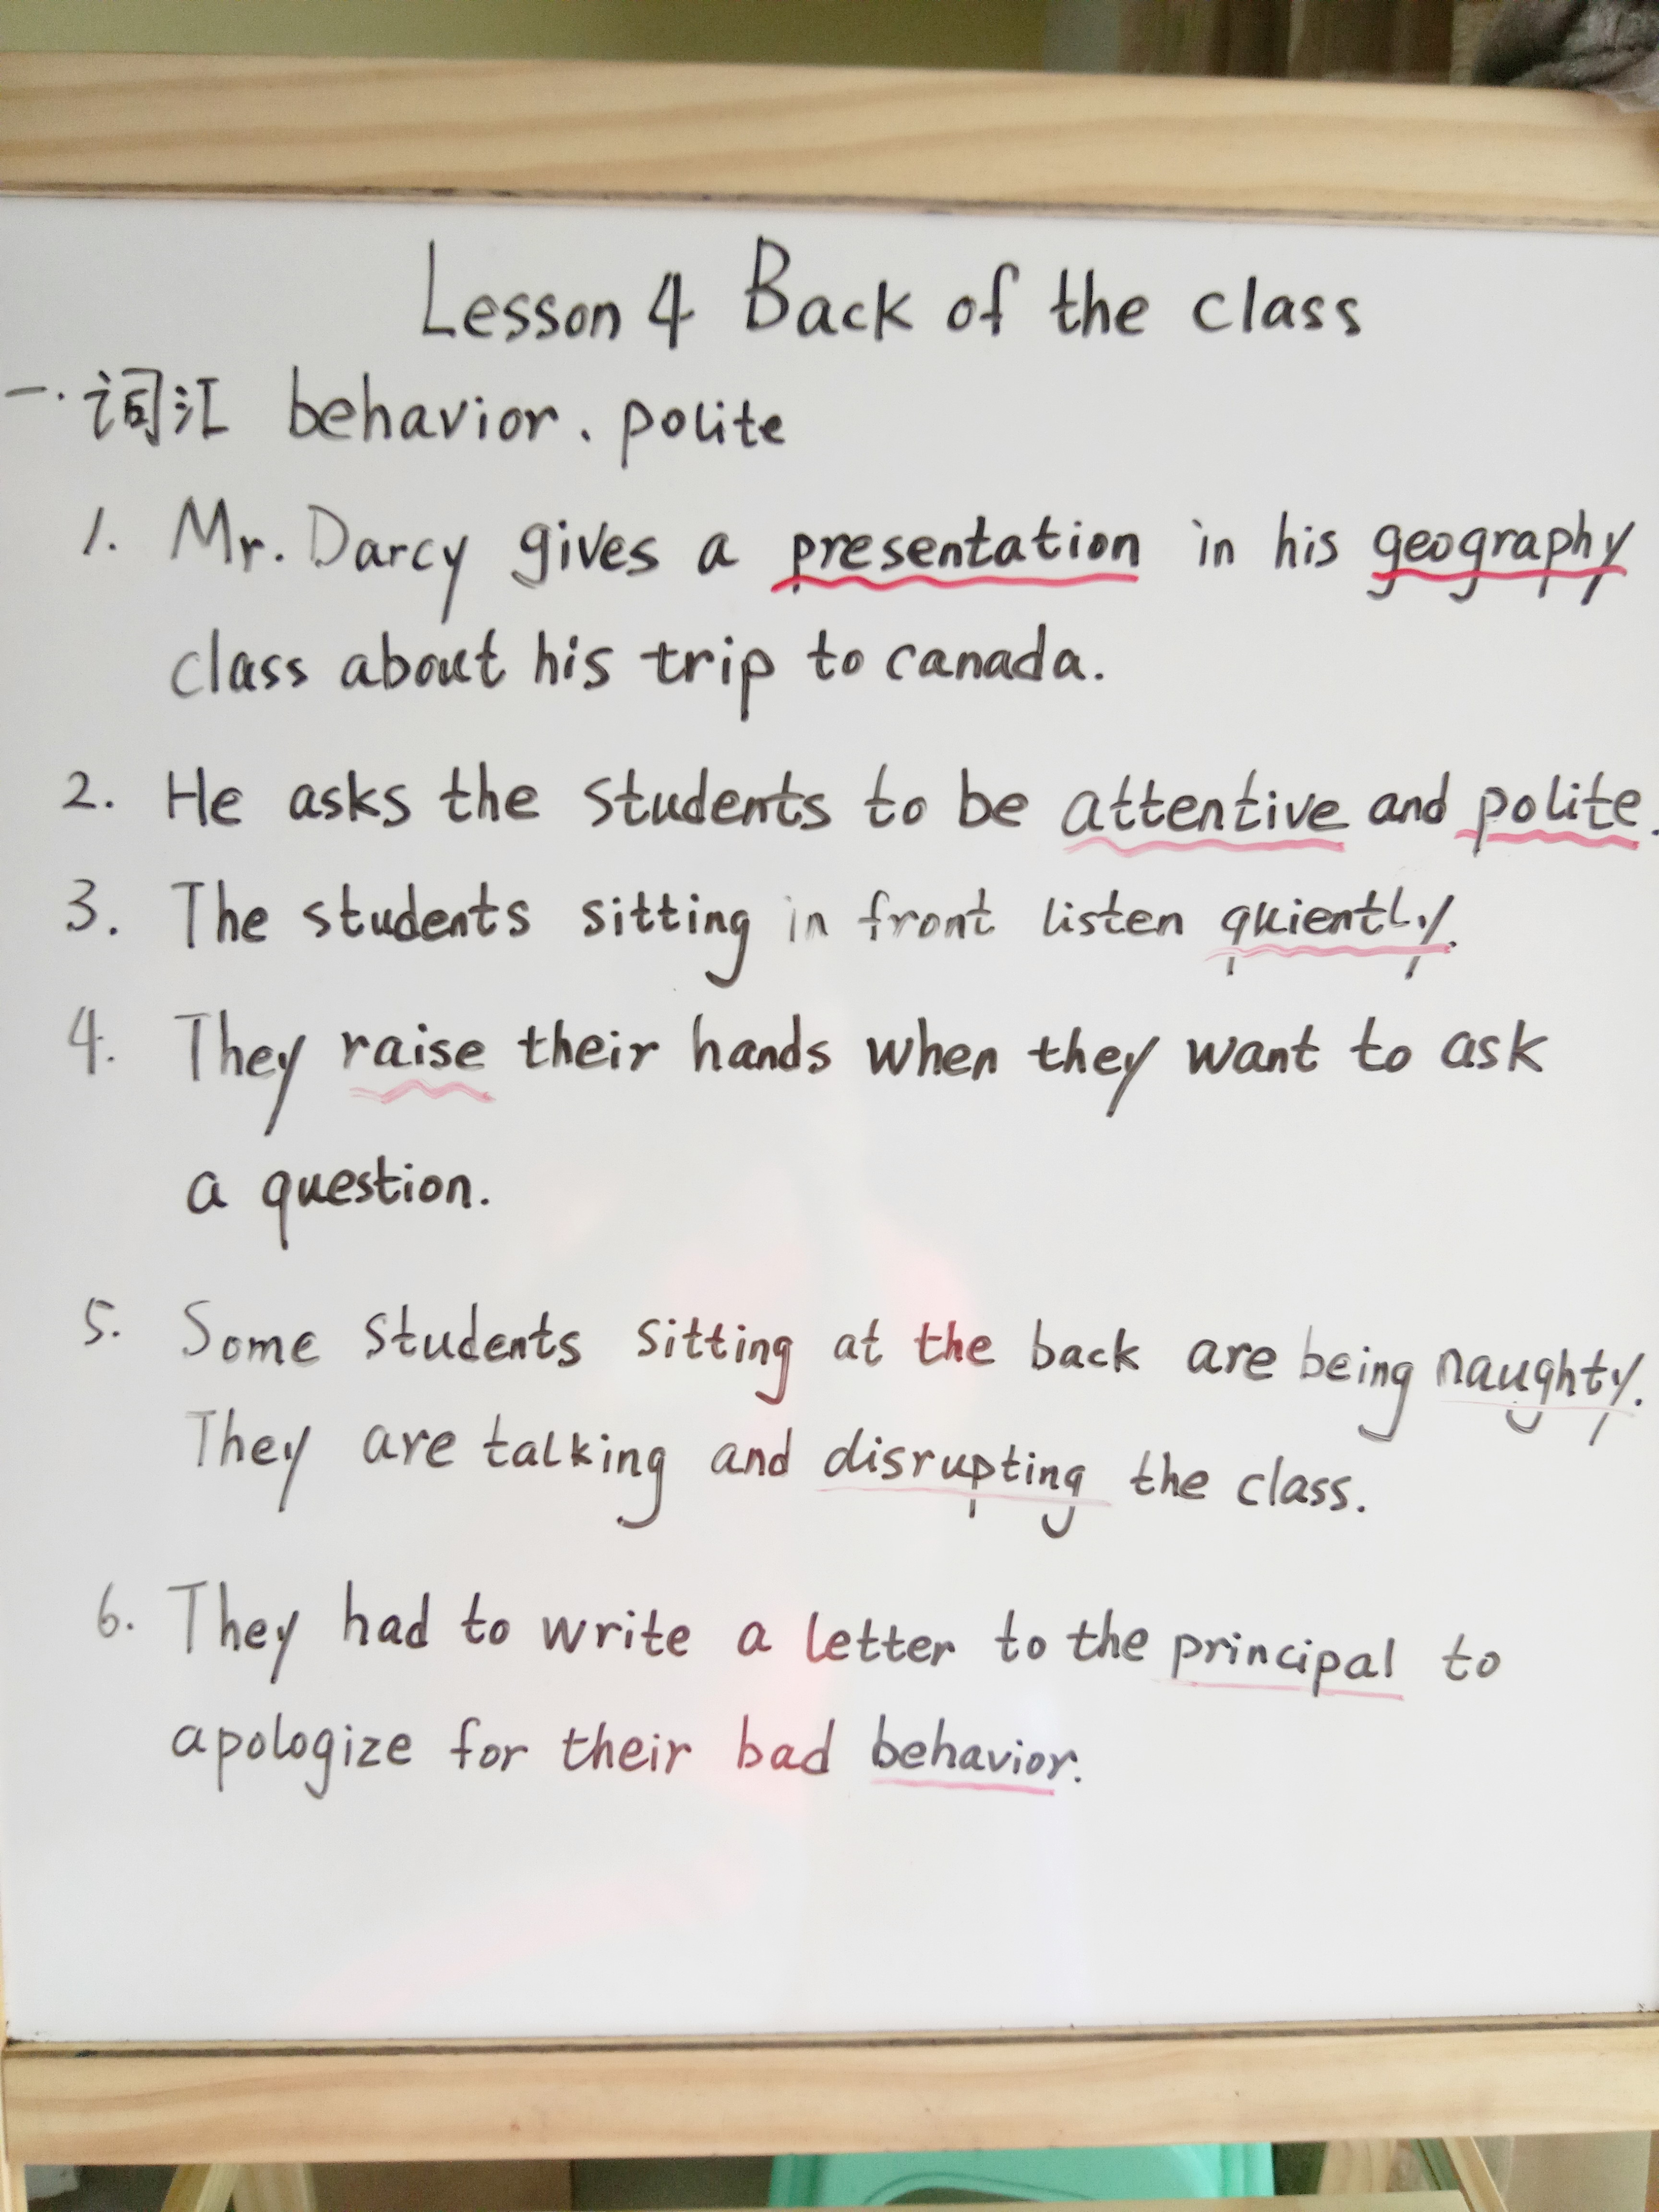 Lesson 4 Back of the class
一.词汇 behavior. polite
1. Mr. Darcy gives a presentation in his geography
class about his trip to canada.
2. He asks the students to be attentive and polite.
3. The students sitting in front listen quiently.
4. They raise their hands when they want to ask
a question.
5. Some students sitting at the back are being naughty.
They are talking and disrupting the class.
6. They had to write a letter to the principal to
apologize for their bad behavior.